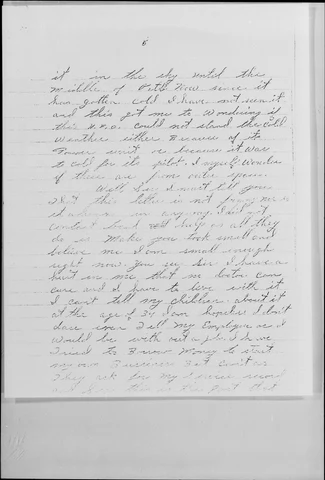 8
it in the sky until the
middle of Feb. Now since it
has gotten cold I have not seen it
and this got me to Wondering if
this U.F.O. could not stand the Cold
Weather either Because of its
Power unit or because it was
to cold for its pilot. I myself Wonder
if these are from outer space.
Well, Sir, I must tell you
that this letter is not from me
in any way. I will not
contact because all they
do is make you look small and
believe me I am small enough
right now. You see Sir I have a
in me that no doctor can
cure and I have to live with it
I can't tell my children about it
at the age of I am hopeless I don't
dare even tell my Employer as I
Would be with out a job. I have
tried to Borrow Money to start
my own Business But can't as
They ask for my record
and